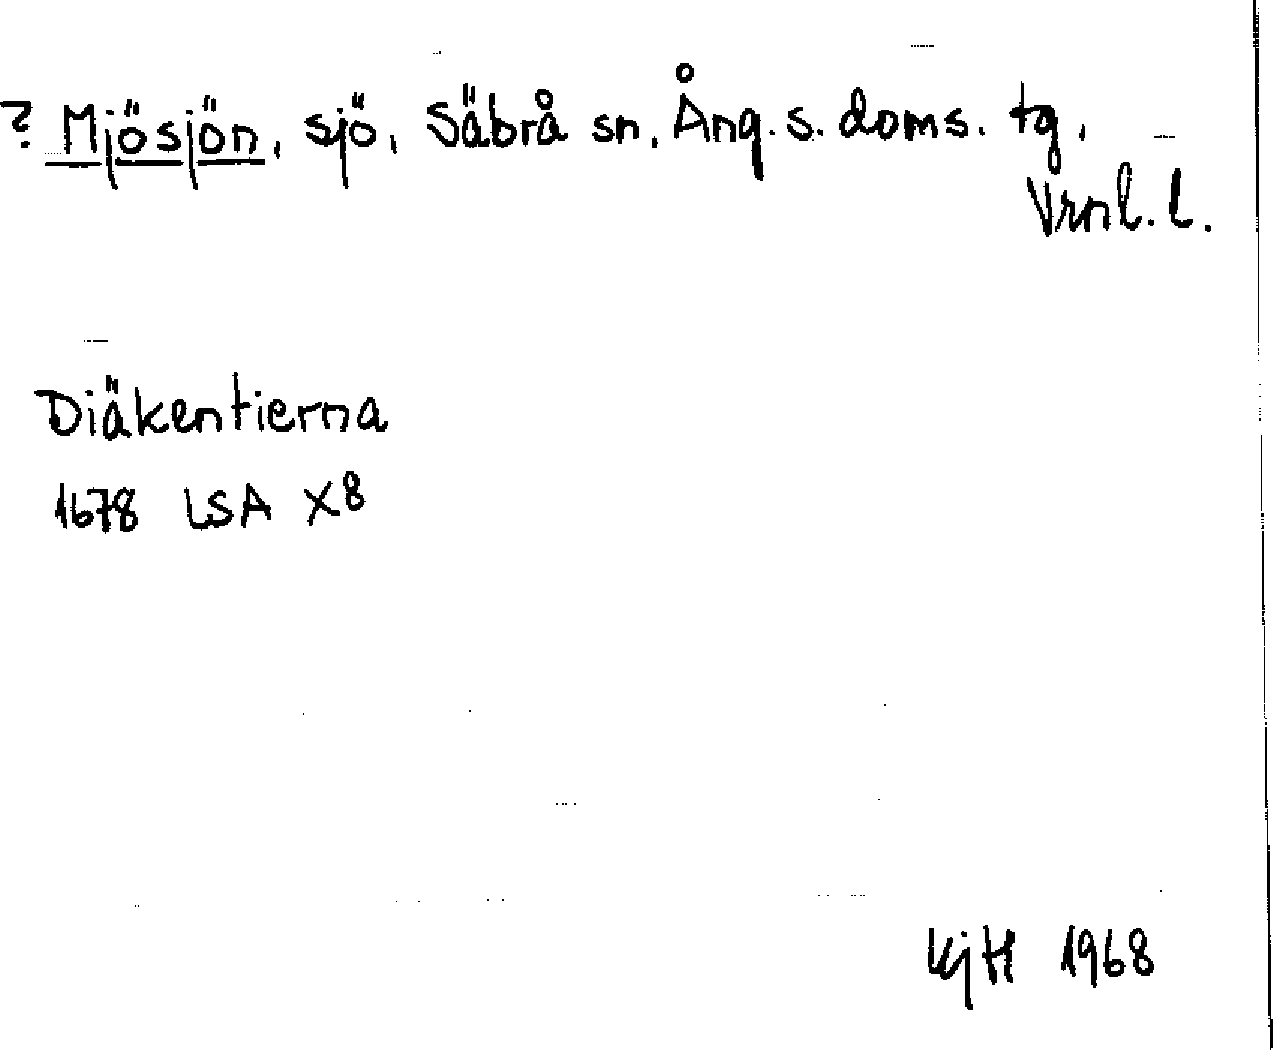 ? Mjösjön, sjö, Säbrå sn, Ång. s. doms. tg,
Vrnl. l.
Diäkentierna
1678 LSA X8
KjH 1968